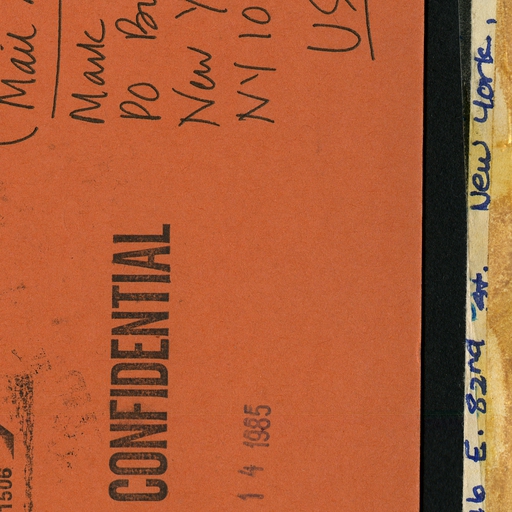 (Mail
Mark
PO
New
NY 10
US
CONFIDENTIAL
14 1985
1506
E. 82nd St. New York,